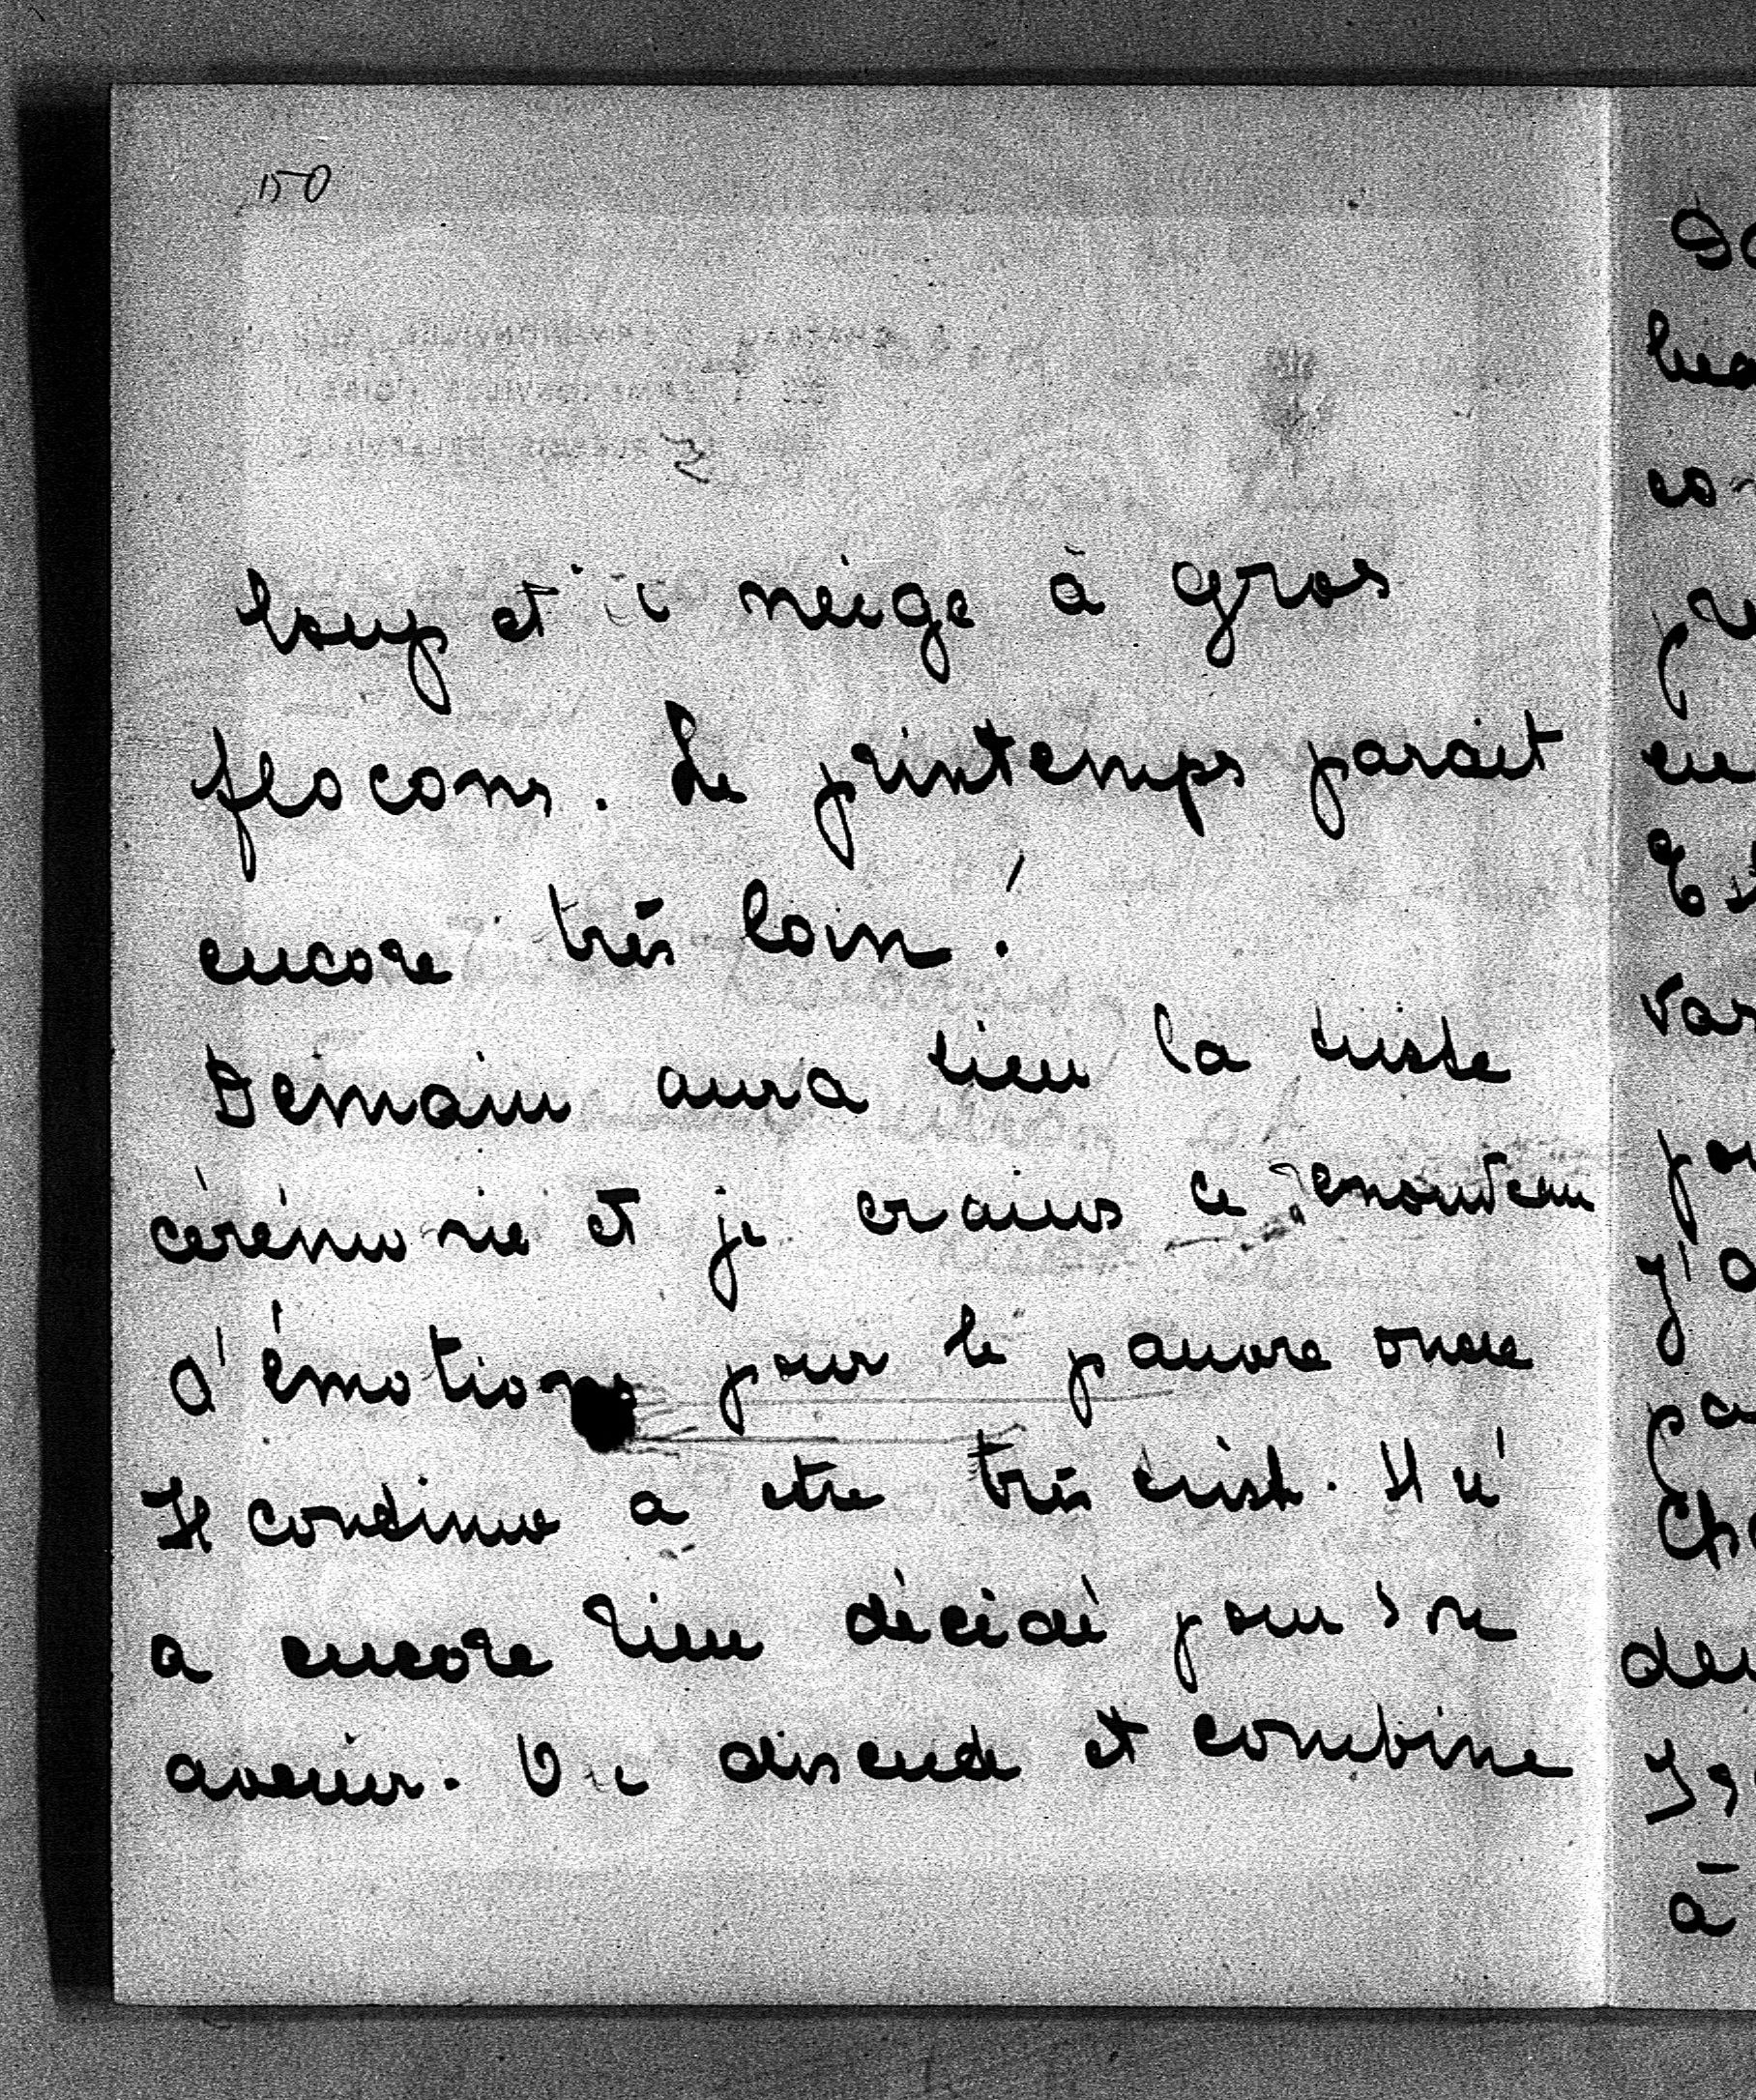 150
loup et i neige à gros
flocons. Le printemps parait
encore très loin!
Demain aura lieu la triste
cérémonie et je crains ce renouveau
d'émotions pour le pauvre oncle
Il continue a etre très triste. Il n'
a encore rien décidé pour son
avenir. On discute et combine